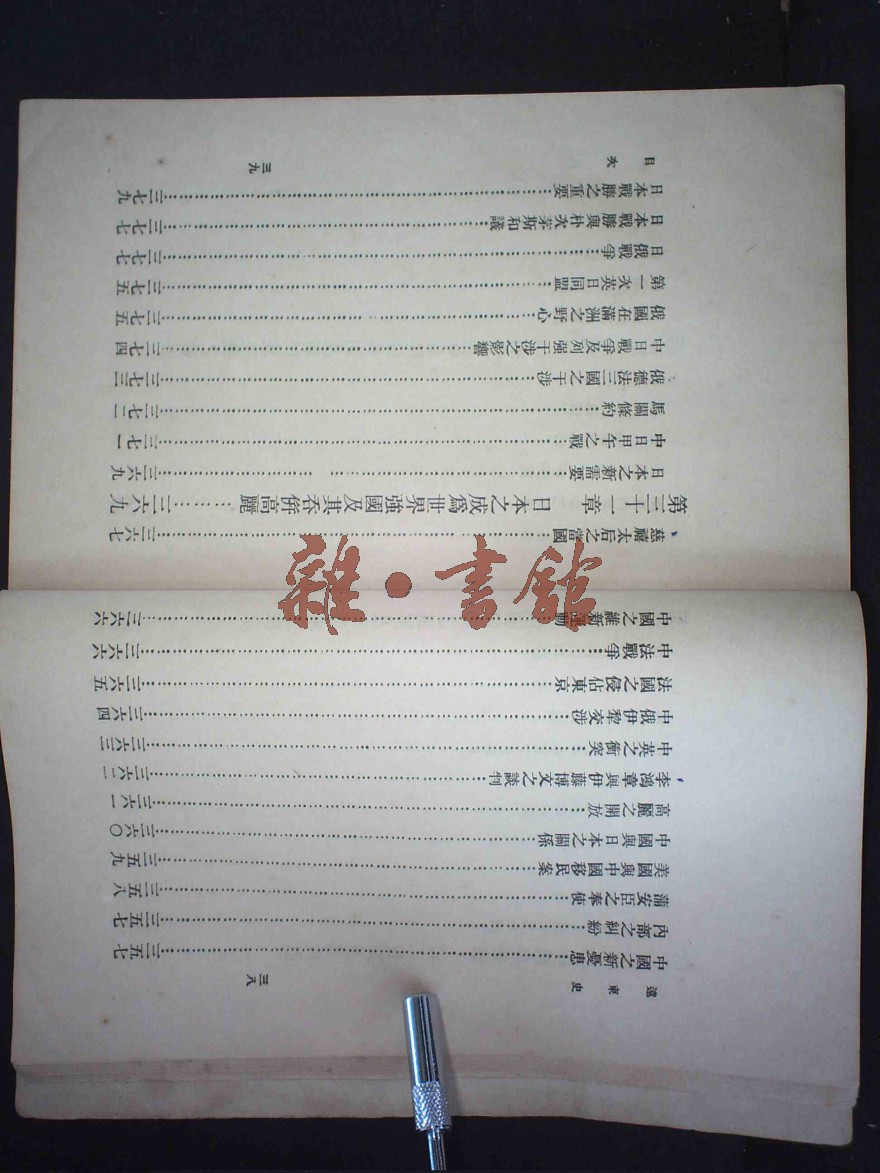 遠東史
三八
中國之新憂患……三五七
內部之糾紛……三五七
蒲安臣之奉使……三五八
美國與中國移民案……三五九
中國與日本之關係……三六〇
高麗之開放……三六一
李鴻章與伊藤博文之談判……三六二
中英之衝突……三六三
中俄伊犂交涉……三六四
法國之侵佔東京……三六五
中法戰爭……三六六
中國之維新運動……三六六
慈禧太后之當國……三六七
第三十一章 日本之成爲世界強國及其吞併高麗……三六九
日本之新需要……三六九
中日甲午之戰……三七一
馬關條約……三七二
俄德法三國之干涉……三七三
中日戰爭及列强干涉之影響……三七四
俄國在滿洲之野心……三七五
第一次英日同盟……三七五
日俄戰爭……三七七
日本戰勝與朴次茅斯和議……三七七
日本戰勝之重要……三七九
目次
三九
雜·書館